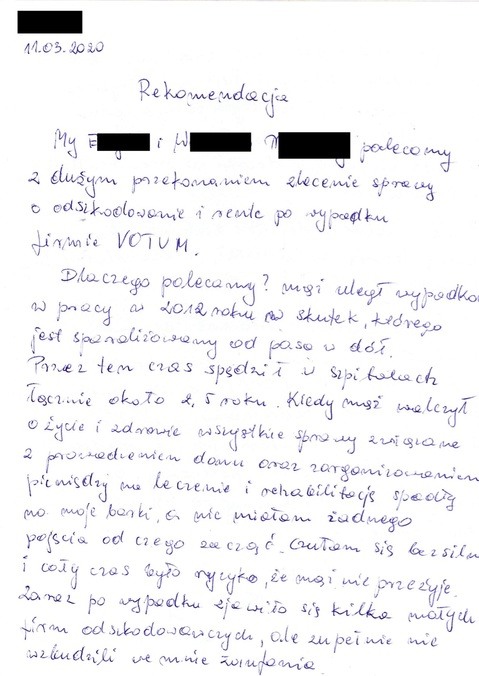 11.03.2020
Rekomendacja
My E i W polecamy
z dużym przekonaniem zlecenie sprawy
o odszkodowanie i rentę po wypadku
firmie VOTUM.
Dlaczego polecamy? mąż uległ wypadko
w pracy w 2012 roku na skutek, którego
jest sparaliżowany od pasa w dół.
Przez ten czas spędził w szpitalach
łącznie około 2,5 roku. Kiedy mąż walczył
o życie i zdrowie wszystkie sprawy związane
z prowadzeniem domu oraz zorganizowaniem
pieniędzy na leczenie i rehabilitację spadły
na moje barki, a nie miałam żadnego
pojęcia od czego zacząć. Czułam się bezsiln
i cały czas było ryzyko, że mąż nie przeżyje.
Zaraz po wypadku zjawiło się kilka małych
firm odszkodowawczych, ale zupełnie nie
wzbudzili we mnie zaufania.